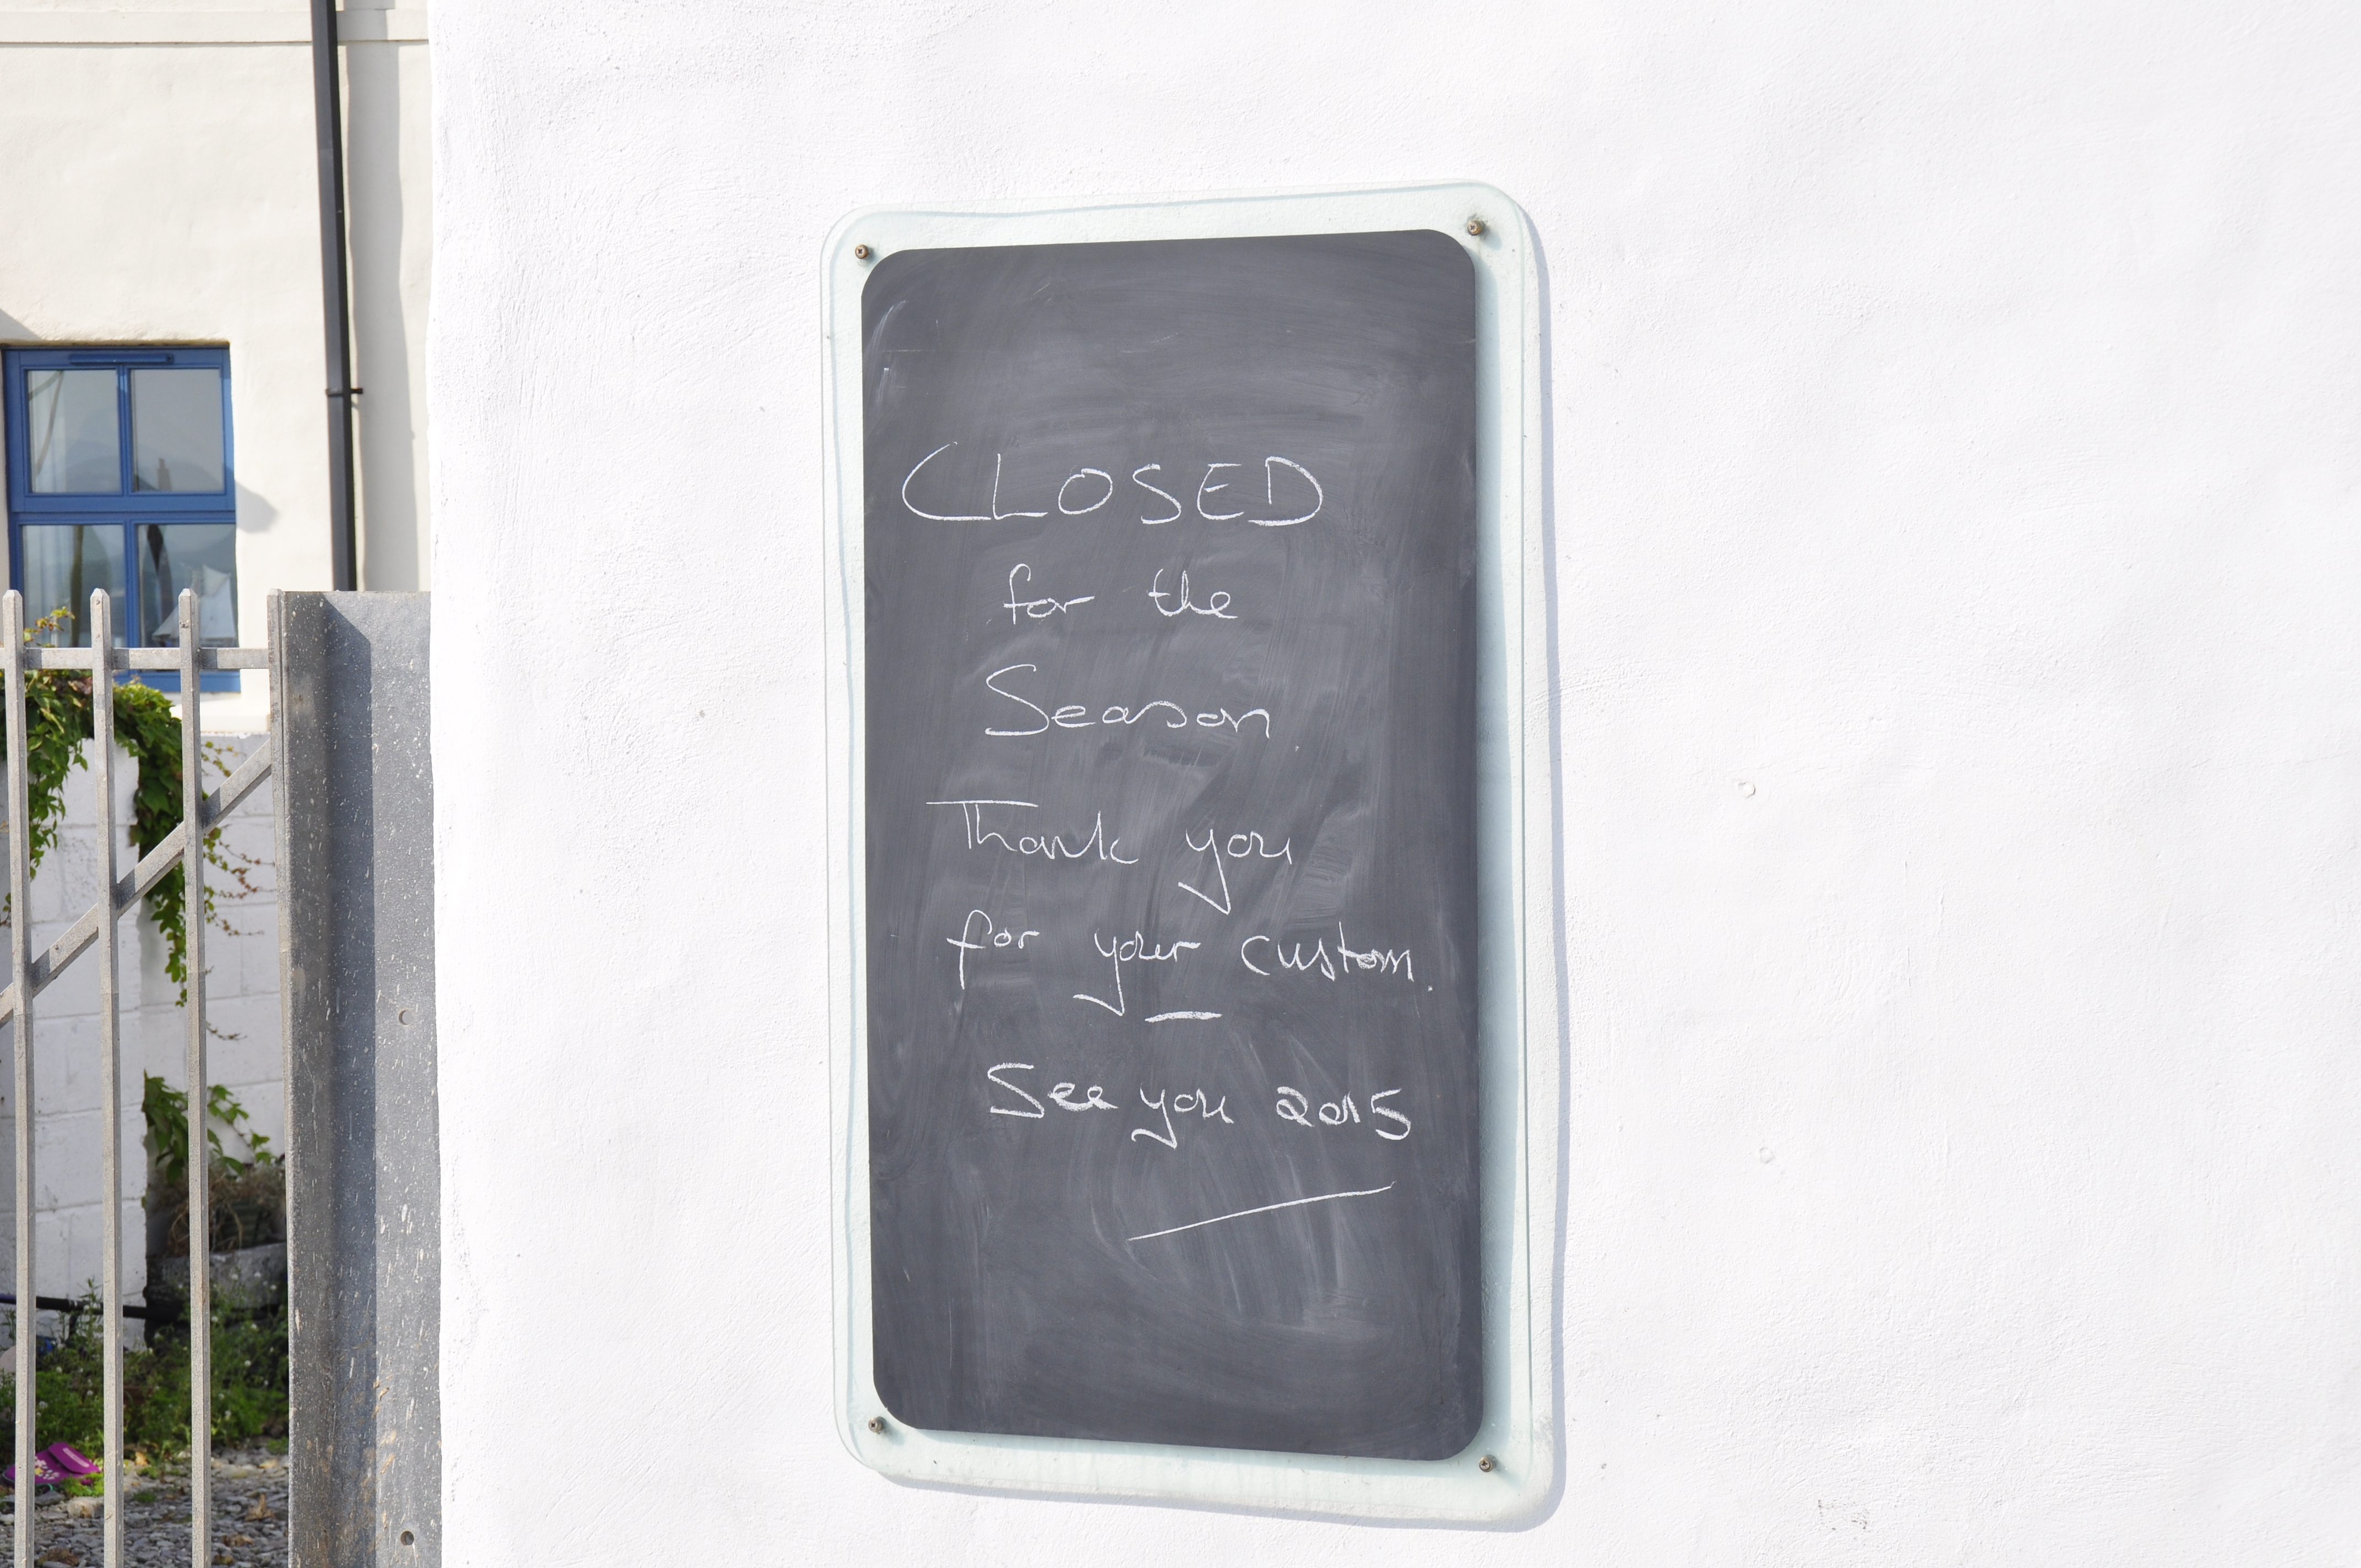 CLOSED
for the
Season.
Thank you
for your custom.
See you 2015